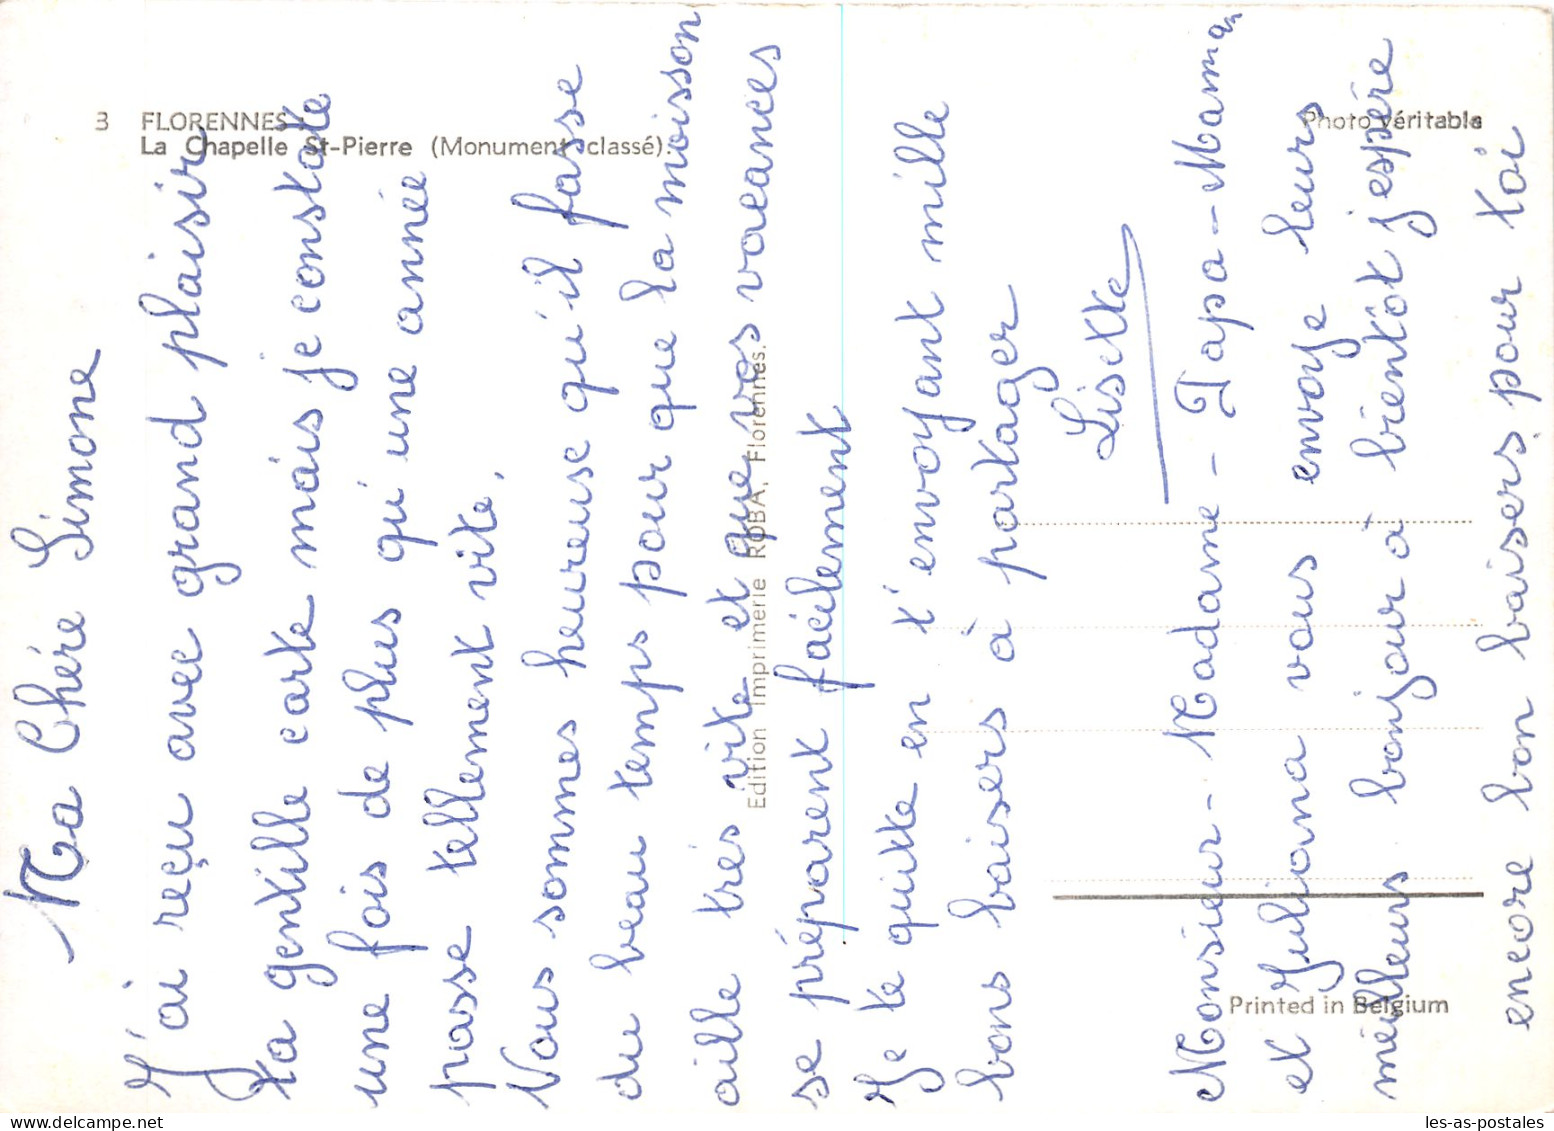 3 FLORENNES.
La Chapelle St-Pierre (Monument classé).
Photo véritable
Edition Imprimerie ROBA, Florennes.
Printed in Belgium
Ma Chére Simone
J'ai reçu avec grand plaisir
ta gentille carte mais je constate
une fois de plus qu'une année
passe tellement vite.
Nous sommes heureuse qu'il fasse
du beau temps pour que la moisson
aille trés vite et que vos vacances
se préparent facilement
Je te quitte en t'envoyant mille
bons baisers à partager
Lisette
Monsieur - Madame - Papa - Maman
et Juliana vous envoye leurs
meilleurs bonjour à bientôt j'espére
encore bon baisers pour toi
les-as-postales